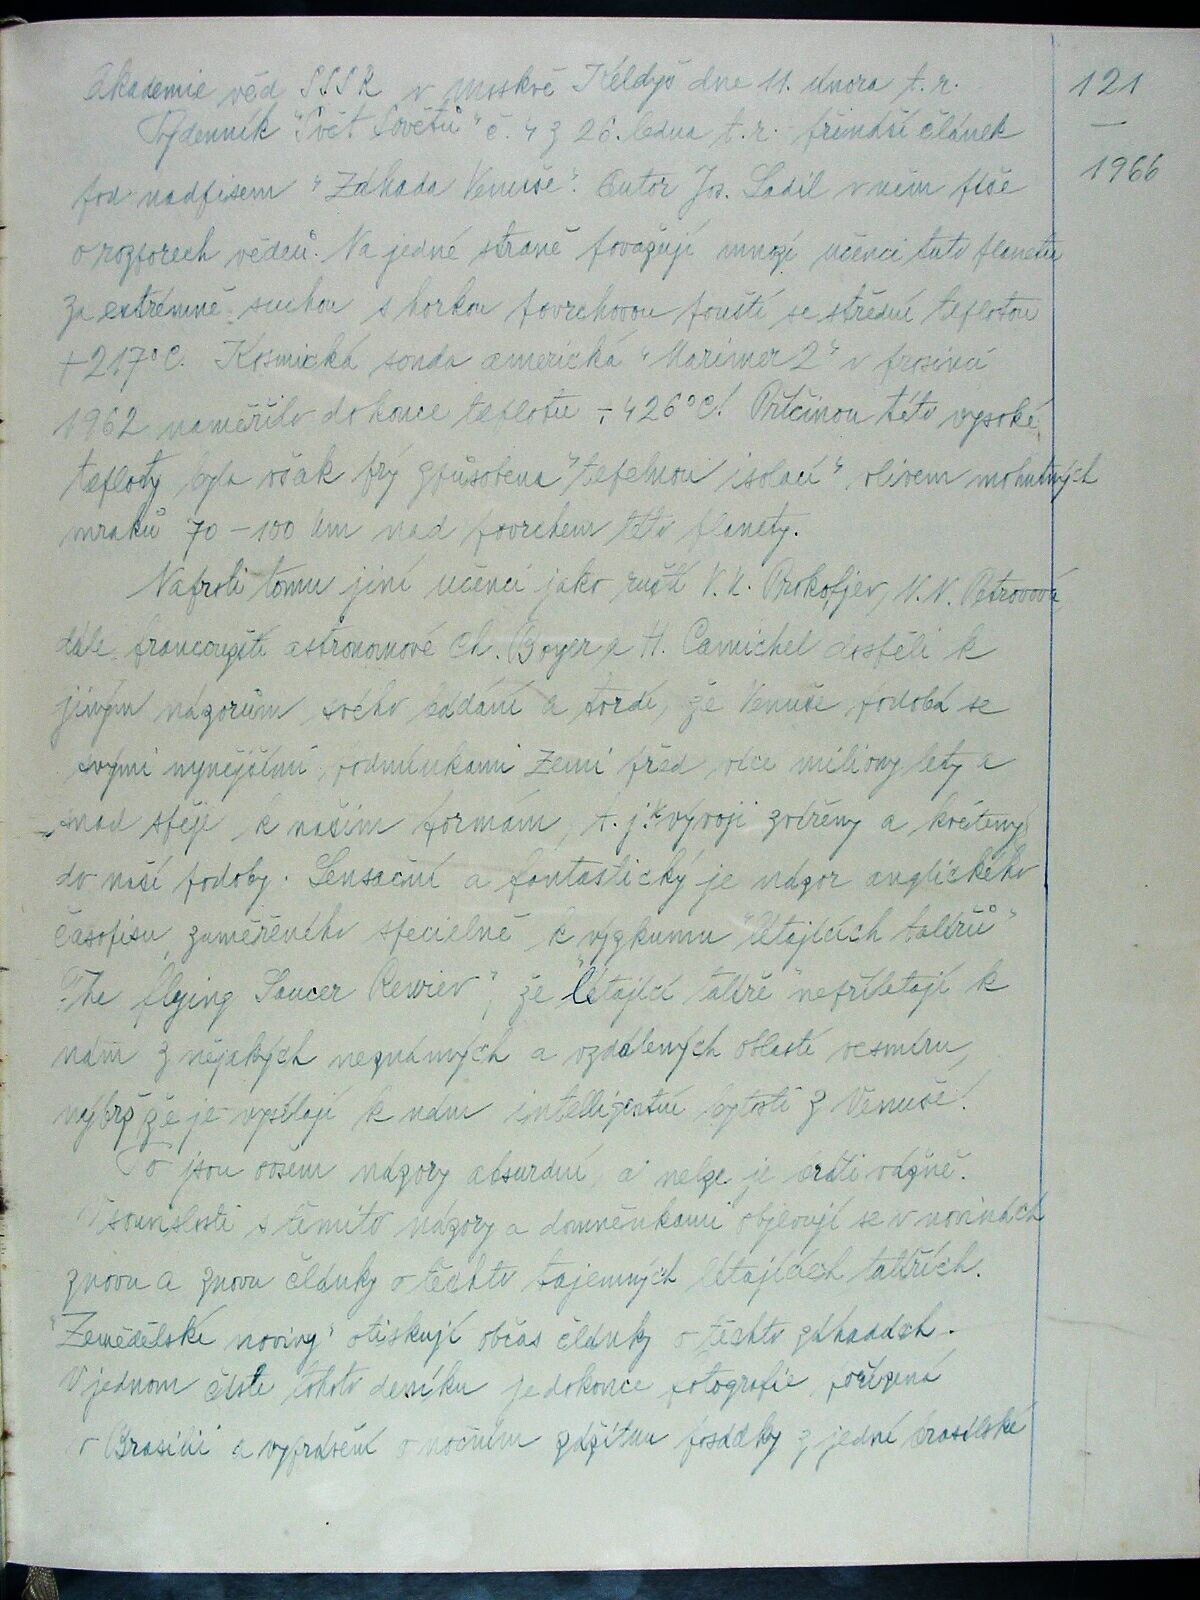 Akademie věd SSSR v Moskvě Kéldyš dne 11. února t. r.
121
—
1966
Týdenník "Svět Sovětů" č. 4 z 26. ledna t. r. přináší článek
pod nadpisem "Záhada Venuše". Autor Jos. Sadil v něm píše
o rozporech vědců. Na jedné straně považují mnozí učenci tuto planetu
za extrémně suchou s horkou povrchovou pouští se střední teplotou
+217°C. Kosmická sonda americká "Mariner 2" v prosinci
1962 naměřila dokonce teplotu + 426°C! Příčinou této vysoké
teploty byla však prý způsobena "tepelnou isolací" vlivem mohutných
mraků 70 – 100 km nad povrchem této planety.
Naproti tomu jiní učenci jako ruští V. K. Prokofjev, N. N. Petrovová
dále francouzští astronomové Ch. Boyer a H. Camichel dospěli k
jiným názorům svého bádání a tvrdí, že Venuše podobá se
svými nynějšími podmínkami Zemi před více miliony lety a
snad spěje k našim formám, t. j. k vývoji zvířeny a květeny
do naší podoby. Sensační a fantastický je názor anglického
časopisu zaměřeného specielně k výzkumu "létajících talířů"
"The flying Saucer Rewiev", že "létající talíře" nepřilétají k
nám z nějakých neznámých a vzdálených oblastí vesmíru,
nýbrž že je vysílají k nám intelligentní bytosti z Venuše!
To jsou ovšem názory absurdní, a nelze je bráti vážně.
V souvislosti s těmito názory a domněnkami objevují se v novinách
znovu a znovu články o těchto tajemných létajících talířích.
"Zemědělské noviny" otiskují občas články o těchto záhadách.
V jednom čísle tohoto deníku je dokonce fotografie pořízená
v Brasilii a vyprávění o nočním zážitku posádky z jedné brasilské